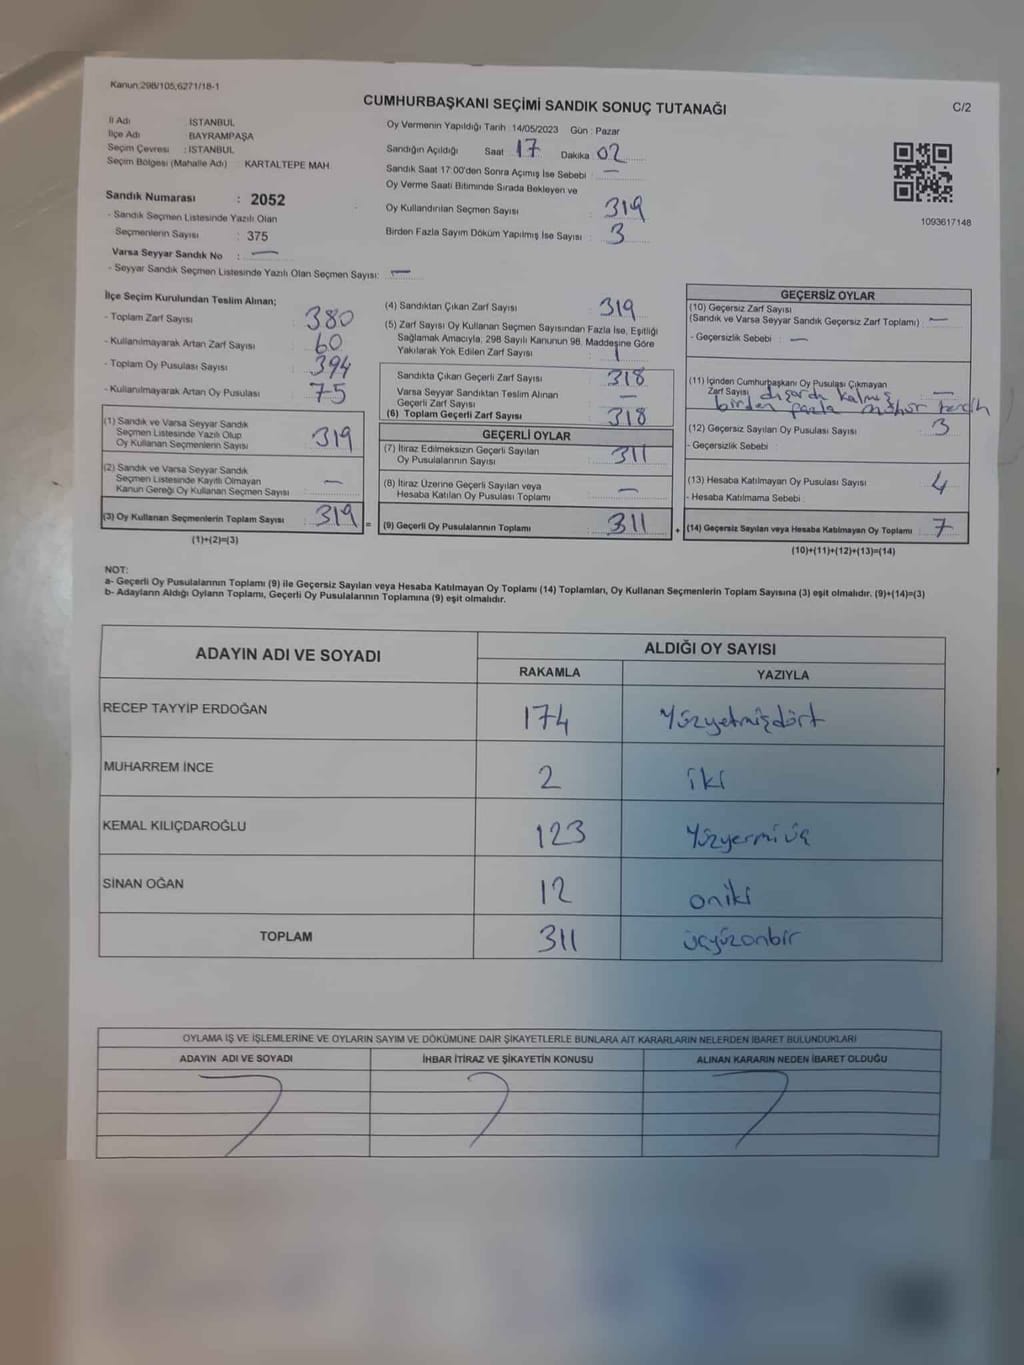 Kanun:298/105,6271/18-1
CUMHURBAŞKANI SEÇİMİ SANDIK SONUÇ TUTANAĞI
C/2
İl Adı : İSTANBUL
İlçe Adı : BAYRAMPAŞA
Seçim Çevresi : İSTANBUL
Seçim Bölgesi (Mahalle Adı) : KARTALTEPE MAH.
Sandık Numarası : 2052
- Sandık Seçmen Listesinde Yazılı Olan
Seçmenlerin Sayısı : 375
Varsa Seyyar Sandık No : —
- Seyyar Sandık Seçmen Listesinde Yazılı Olan Seçmen Sayısı: —
Oy Vermenin Yapıldığı Tarih : 14/05/2023 Gün : Pazar
Sandığın Açıldığı Saat 17 Dakika 02
Sandık Saat 17:00'den Sonra Açımış İse Sebebi : —
Oy Verme Saati Bitiminde Sırada Bekleyen ve
Oy Kullandırılan Seçmen Sayısı : 319
Birden Fazla Sayım Döküm Yapılmış İse Sayısı : 3
1093617148
İlçe Seçim Kurulundan Teslim Alınan;
- Toplam Zarf Sayısı : 380
- Kullanılmayarak Artan Zarf Sayısı : 60
- Toplam Oy Pusulası Sayısı : 394
- Kullanılmayarak Artan Oy Pusulası : 75
(1) Sandık ve Varsa Seyyar Sandık
Seçmen Listesinde Yazılı Olup
Oy Kullanan Seçmenlerin Sayısı : 319
(2) Sandık ve Varsa Seyyar Sandık
Seçmen Listesinde Kayıtlı Olmayan
Kanun Gereği Oy Kullanan Seçmen Sayısı : —
(3) Oy Kullanan Seçmenlerin Toplam Sayısı : 319
(1)+(2)=(3)
=
(4) Sandıktan Çıkan Zarf Sayısı : 319
(5) Zarf Sayısı Oy Kullanan Seçmen Sayısından Fazla İse, Eşitliği
Sağlamak Amacıyla, 298 Sayılı Kanunun 98. Maddesine Göre
Yakılarak Yok Edilen Zarf Sayısı : 1
Sandıkta Çıkan Geçerli Zarf Sayısı : 318
Varsa Seyyar Sandıktan Teslim Alınan
Geçerli Zarf Sayısı : —
(6) Toplam Geçerli Zarf Sayısı : 318
GEÇERLİ OYLAR
(7) İtiraz Edilmeksizin Geçerli Sayılan
Oy Pusulalarının Sayısı : 311
(8) İtiraz Üzerine Geçerli Sayılan veya
Hesaba Katılan Oy Pusulası Toplamı : —
(9) Geçerli Oy Pusulalarının Toplamı : 311
+
GEÇERSİZ OYLAR
(10) Geçersiz Zarf Sayısı
(Sandık ve Varsa Seyyar Sandık Geçersiz Zarf Toplamı) : —
- Geçersizlik Sebebi : —
(11) İçinden Cumhurbaşkanı Oy Pusulası Çıkmayan
Zarf Sayısı : —
dışarda kalmış
birden fazla mühür tercih
(12) Geçersiz Sayılan Oy Pusulası Sayısı : 3
- Geçersizlik Sebebi :
(13) Hesaba Katılmayan Oy Pusulası Sayısı : 4
- Hesaba Katılmama Sebebi :
(14) Geçersiz Sayılan veya Hesaba Katılmayan Oy Toplamı : 7
(10)+(11)+(12)+(13)=(14)
NOT:
a- Geçerli Oy Pusulalarının Toplamı (9) ile Geçersiz Sayılan veya Hesaba Katılmayan Oy Toplamı (14) Toplamları, Oy Kullanan Seçmenlerin Toplam Sayısına (3) eşit olmalıdır. (9)+(14)=(3)
b- Adayların Aldığı Oyların Toplamı, Geçerli Oy Pusulalarının Toplamına (9) eşit olmalıdır.
ADAYIN ADI VE SOYADI ALDIĞI OY SAYISI
RAKAMLA YAZIYLA
RECEP TAYYİP ERDOĞAN 174 Yüzyetmişdört
MUHARREM İNCE 2 iki
KEMAL KILIÇDAROĞLU 123 Yüzyermiüç
SİNAN OĞAN 12 oniki
TOPLAM 311 üçyüzonbir
OYLAMA İŞ VE İŞLEMLERİNE VE OYLARIN SAYIM VE DÖKÜMÜNE DAİR ŞİKAYETLERLE BUNLARA AİT KARARLARIN NELERDEN İBARET BULUNDUKLARI
ADAYIN ADI VE SOYADI İHBAR İTİRAZ VE ŞİKAYETİN KONUSU ALINAN KARARIN NEDEN İBARET OLDUĞU